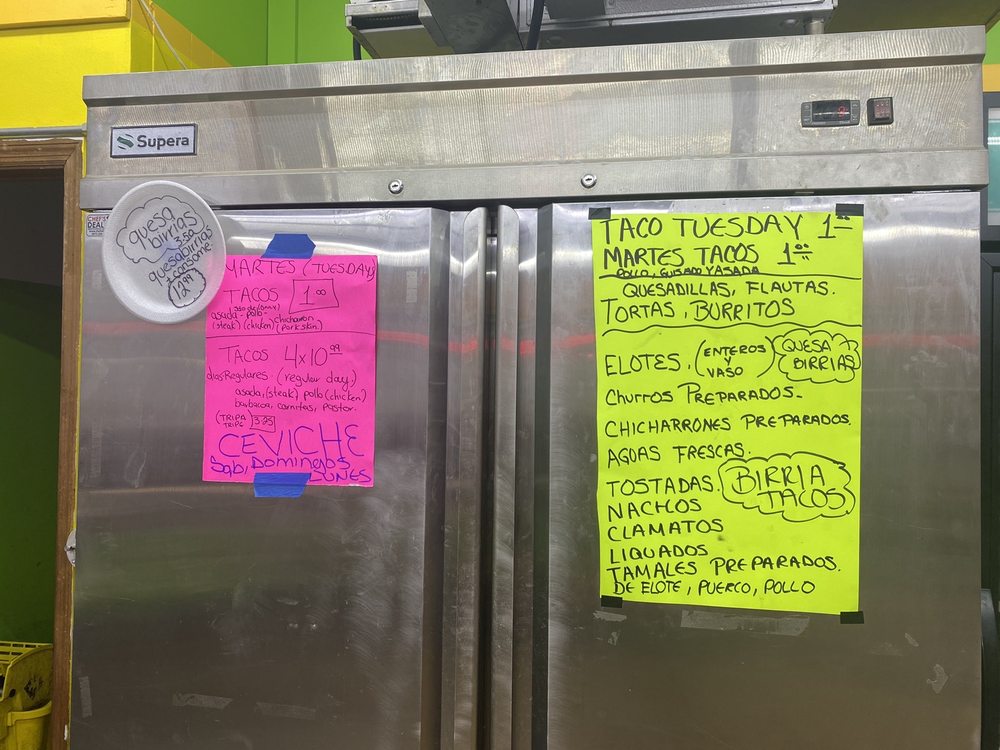 Supera
CHEF'S
DEAL
quesa
birrias
3.50
quesabirrias
+consome
12.99
MARTES (TUESDAY)
TACOS 1.00
asada - pollo -
(steak) (chicken) chicharron
(porkskin)
TACOS 4x10.99
dias Regulares (regular day)
asada, (steak) pollo (chicken)
barbacoa, carnitas, pastor.
(TRIPA
TRIPE) 3.25
CEVICHE
Sab, Domingos
LUNES
TACO TUESDAY 1.00
MARTES TACOS 1.00
POLLO, GUISADO Y ASADA
QUESADILLAS, FLAUTAS.
TORTAS, BURRITOS
ELOTES. (ENTEROS
Y
VASO)
QUESA
BIRRIAS
Churros PREPARADOS-
CHICHARRONES PREPARADOS.
AGUAS FRESCAS.
TOSTADAS.
BIRRIA
TACOS
NACHOS
CLAMATOS
LIQUADOS
TAMALES PREPARADOS.
DE ELOTE, PUERCO, POLLO